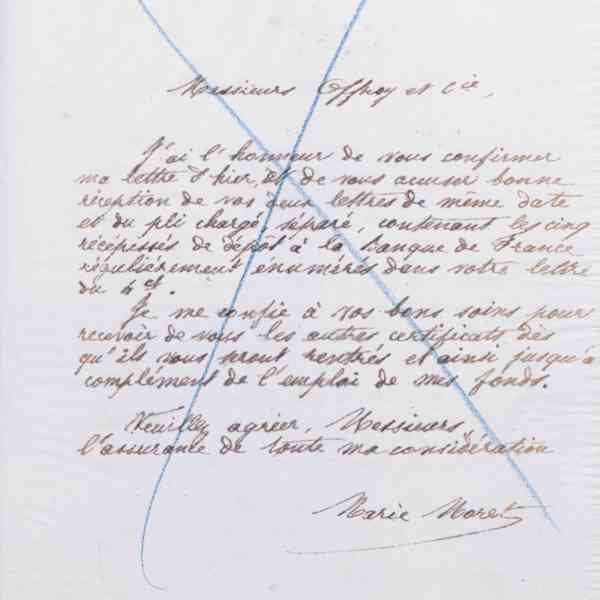 Messieurs Offroy et Cie,
J'ai l'honneur de vous confirmer
ma lettre d'hier, et de vous accuser bonne
réception de vos deux lettres de même date
et du pli chargé, séparé, contenant les cinq
récépissés de dépôt à la Banque de France
régulièrement énumérés dans votre lettre
du 4 ct.
Je me confie à vos bons soins pour
recevoir de vous les autres certificats dès
qu'ils vous seront rentrés et ainsi jusqu'à
complément de l'emploi de mes fonds.
Veuillez agréer, Messieurs,
l'assurance de toute ma considération
Marie Moret